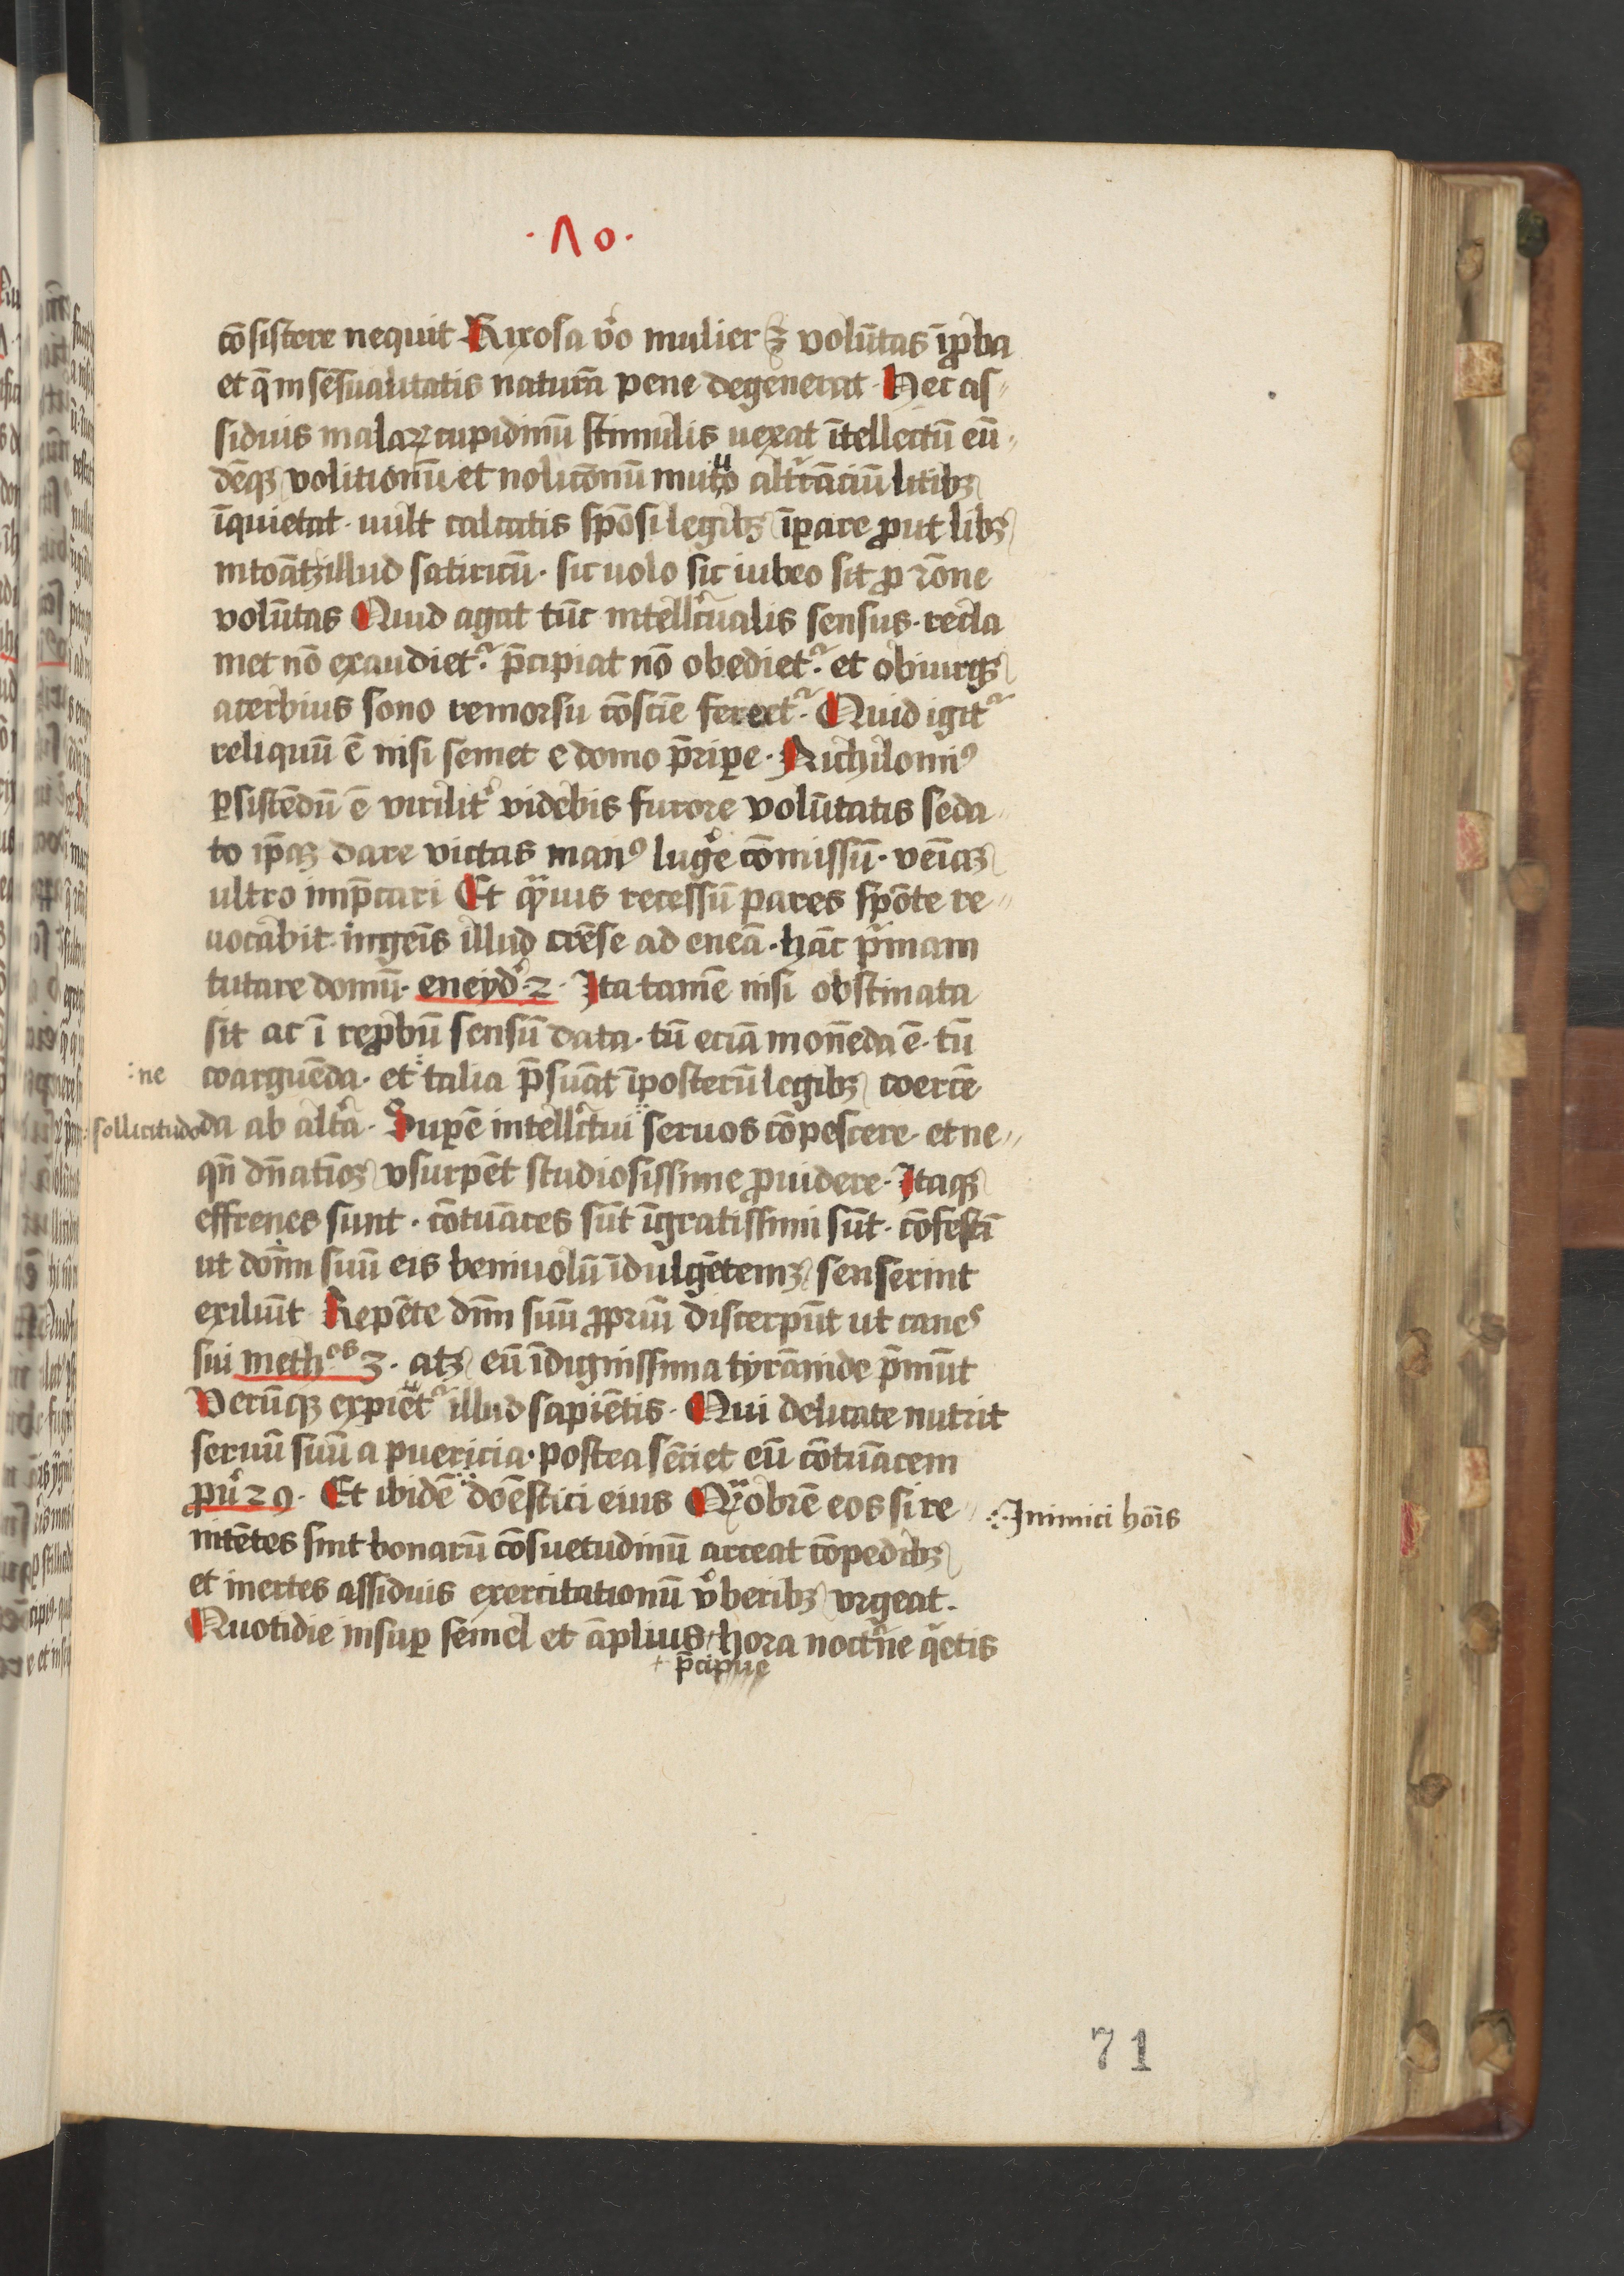 ·Λ0·
cōsistere nequit Rixosa v̊o mulier ꝫ̄ volūtas īꝓba
et q̄ in sēsualitatis naturā pene degenerat Hec as„
siduis malaꝝ cupidinū stimulis uexat ītellectū eū„
dēqꝫ volitionū et nolitōnū mutuo altrcāciū litibꝫ
īquietat· uult calcatis spōsi legibꝫ īꝑare ꝓut libꝫ
intoātꝫ illud satiricū· sic uolo sic iubeo sit ꝓ rōne
volūtas Quid agat tūc intellc̃ualis sensus· recla
met nō exaudiet᷑· p̄cipiat nō obediet᷑· et obiurgꝫ
acerbius sono remorsu cōsciē ferect᷑· Quid igit᷑
reliquū ē nisi semet e domo p̄riꝑe· Nichilomiꝰ
ꝑsistēdū ē virilit̾ videbis furore volūtatis seda„
to ip̄aqꝫ dare victas manꝰ lug̾e cōmissū· ueīaqꝫ
ultro imp̄cari Et qͣuis recessū pares spōte re„
uocabit· īngeīs illud crēse ad eneā· hāc pͥmam
tutare domū· eneyd̾· 2· Ita tamē nisi obstinata
sit ac ī reꝓbū sensū data· tū eciā monēda ē· tū
:ne coarguēda· et talia p̄suāt īposterū legibꝫ coercē
sollicitudo da ab altͣa· Supē intellc̃tui seruos cōpescere· et ne„
qn̄ dn̄atīoꝫ vsurpēt studiosissime ꝓuidere· Itaqꝫ
effrenes sunt· cōtuāces sūt īgratissimi sūt· cōfestī
ut doīm suū eis beniuolū īdulgētemqꝫ senserint
exiliūt Repēte dn̄m suū ꝓpriū discerpūt ut canes
sui methos 3· atqꝫ eū īdignissima tyrānide p̄mūt
Verūqꝫ expiēt᷑ illud sapiētis· Qui delicate nutrit
seruū suū a puericia· postea sēciet eū cōtuācem
ꝓu̾ 29· Et ibidē domēstici eius Qͣobrē eos si re
∴Inimici hoīs
nitētes sint bonarū cōsuetudinū arceat cōpedibꝫ
et inertes assiduis exercitationū v̾beribꝫ vrgeat·
Quotidie insuꝑ semel et āplius + hora nocturne qͥetis
+ p̄cipue
71